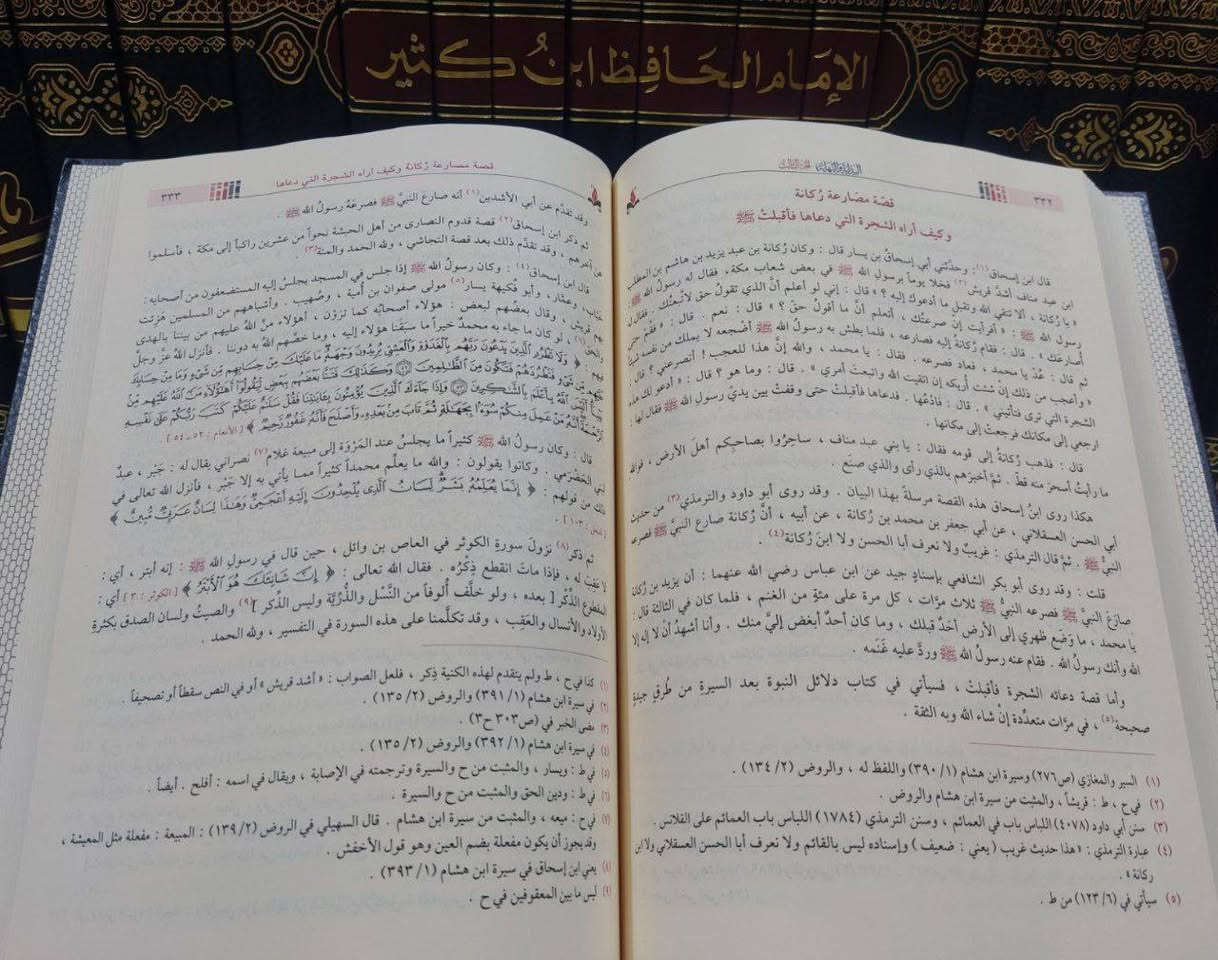 الإمام الحافظ ابن كثير
البداية والنهاية
٣٣٢
قصّة مصارعة رُكانة
وكيف أراه الشجرة التي دعاها فأقبلتْ ﷺ
قال ابن إسحاق(١): وحدَّثني أبي إسحاقُ بن يسار قال : وكان رُكانة بن عبد يزيد بن هاشم بن المطلب
ابن عبد مناف أشدَّ قريش(٢) فخلا يوماً برسول الله ﷺ في بعض شعاب مكة، فقال له رسول الله ﷺ :
« يا رُكانة ، ألا تتقي الله وتقبل ما أدعوك إليه ؟ » قال : إني لو أعلم أنَّ الذي تقولُ حق لاتَّبعتُك . فقال له
رسول الله ﷺ : « أفرأيت إنْ صرعتُك ، أتعلم أنَّ ما أقولُ حقّ ؟ » قال : نعم . قال : « فقُمْ حتى
أصارعَك » . قال : فقام رُكانة إليه فصارعه ، فلما بطش به رسول الله ﷺ أضجعه لا يملك من نفسه شيئاً
ثم قال : عُدْ يا محمد ، فعاد فصرعه . فقال : يا محمد ، والله إنَّ هذا للعجب ! أتصرعني ؟ قال :
« وأعجب من ذلك إنْ شئت أُريكه إن اتقيت الله واتبعتَ أمري » . قال : وما هو ؟ قال : « أدعو لك هذه
الشجرة التي ترى فتأتيني » . قال : فادْعُها . فدعاها فأقبلتْ حتى وقفتْ بين يديْ رسولِ الله ﷺ فقال لها :
ارجعي إلى مكانك فرجعتْ إلى مكانها .
قال : فذهب رُكانةُ إلى قومه فقال : يا بني عبد مناف ، ساحِرُوا بصاحبكم أهلَ الأرض ، فوالله
ما رأيتُ أسحرَ منه قطّ . ثمَّ أخبَرَهم بالذي رأى والذي صنَع .
هكذا روى ابنُ إسحاق هذه القصة مرسلةً بهذا البيان . وقد روى أبو داود والترمذي(٣) من حديث
أبي الحسن العسقلاني ، عن أبي جعفر بن محمد بن رُكانة ، عن أبيه ، أنَّ رُكانة صارع النبيَّ ﷺ فصرعه
النبيُّ ﷺ . ثمَّ قال الترمذي : غريبٌ ولا نعرف أبا الحسن ولا ابنَ رُكانة(٤) .
قلت : وقد روى أبو بكر الشافعي بإسنادٍ جيد عن ابن عباس رضي الله عنهما : أن يزيد بن رُكانة
صارَع النبيَّ ﷺ فصرعه النبيُّ ﷺ ثلاث مرَّات ، كل مرة على مئةٍ من الغنم ، فلما كان في الثالثة قال :
يا محمد ، ما وَضع ظهري إلى الأرض أحدٌ قبلك ، وما كان أحدٌ أبغضَ إليَّ منك . وأنا أشهدُ أن لا إله إلا
الله وأنك رسولُ الله . فقام عنه رسولُ الله ﷺ وردَّ عليه غَنَمه .
وأما قصة دعائه الشجرة فأقبلتْ ، فسيأتي في كتاب دلائل النبوة بعد السيرة من طُرقٍ جيدةٍ
صحيحة(٥) ، في مرَّات متعدِّدة إنْ شاء الله وبه الثقة .
(١) السير والمغازي (ص٢٧٦) وسيرة ابن هشام (١/ ٣٩٠) واللفظ له ، والروض (٢/ ١٣٤) .
(٢) في ح ، ط : قريشاً ، والمثبت من سيرة ابن هشام والروض .
(٣) سنن أبي داود (٤٠٧٨) اللباس باب في العمائم ، وسنن الترمذي (١٧٨٤) اللباس باب العمائم على القلانس .
(٤) عبارة الترمذي : « هذا حديث غريب (يعني : ضعيف) وإسناده ليس بالقائم ولا نعرف أبا الحسن العسقلاني ولا ابن
ركانة » .
(٥) سيأتي في (٦/ ١٢٣) من ط .
قصة مصارعة رُكانة وكيف أراه الشجرة التي دعاها
٣٣٣
وقد تقدَّم عن أبي الأشدين(١) أنه صارَع النبيَّ ﷺ فصرعَهُ رسولُ الله ﷺ .
ثم ذكر ابن إسحاق(٢) قصة قدوم النصارى من أهل الحبشة نحواً من عشرين راكباً إلى مكة ، فأسلموا
عن آخرهم ، وقد تقدَّم ذلك بعد قصة النجاشي ، ولله الحمد والمنة(٣) .
قال ابن إسحاق(٤) : وكان رسولُ الله ﷺ إذا جلس في المسجد يجلسُ إليه المستضعفون من أصحابه :
خبَّاب ، وعمَّار ، وأبو فُكيهة يسار(٥) مولى صفوان بن أُمية ، وصُهيب . وأشباههم من المسلمين هَزِئت
بهم قريش ، وقال بعضُهم لبعض : هؤلاء أصحابُه كما تَرَوْن ، أهؤلاء منَّ اللهُ عليهم من بيننا بالهدى
والحق(٦) ، لو كان ما جاء به محمدٌ خيراً ما سبَقَنا هؤلاء إليه ، وما خصَّهم اللهُ به دوننا . فأنزل اللهُ عزَّ وجلَّ
فيهم : ﴿ وَلَا تَطْرُدِ الَّذِينَ يَدْعُونَ رَبَّهُم بِالْغَدَوٰةِ وَالْعَشِيِّ يُرِيدُونَ وَجْهَهُ مَا عَلَيْكَ مِنْ حِسَابِهِم مِّن شَيْءٍ وَمَا مِنْ حِسَابِكَ
عَلَيْهِم مِّن شَيْءٍ فَتَطْرُدَهُمْ فَتَكُونَ مِنَ الظَّٰلِمِينَ ۝ وَكَذَٰلِكَ فَتَنَّا بَعْضَهُم بِبَعْضٍ لِّيَقُولُوٓا أَهَٰٓؤُلَآءِ مَنَّ اللَّهُ عَلَيْهِم مِّن
بَيْنِنَآ أَلَيْسَ اللَّهُ بِأَعْلَمَ بِالشَّٰكِرِينَ ۝ وَإِذَا جَآءَكَ الَّذِينَ يُؤْمِنُونَ بِـَٔايَٰتِنَا فَقُلْ سَلَٰمٌ عَلَيْكُمْ كَتَبَ رَبُّكُمْ عَلَىٰ نَفْسِهِ
الرَّحْمَةَ أَنَّهُ مَنْ عَمِلَ مِنكُمْ سُوٓءًا بِجَهَٰلَةٍ ثُمَّ تَابَ مِنۢ بَعْدِهِ وَأَصْلَحَ فَأَنَّهُ غَفُورٌ رَّحِيمٌ ﴾ [ الأنعام : ٥٢ـ٥٤ ] .
قال : وكان رسولُ الله ﷺ كثيراً ما يجلسُ عند المَرْوَة إلى مبيعة غلام(٧) نصراني يقال له : جَبْر ، عبدٌ
لبني الحَضْرَمي . وكانوا يقولون : والله ما يعلِّم محمداً كثيراً مما يأتي به إلا جَبْر ، فأنزل الله تعالى في
ذلك من قولهم : ﴿ إِنَّمَا يُعَلِّمُهُ بَشَرٌ لِّسَانُ الَّذِي يُلْحِدُونَ إِلَيْهِ أَعْجَمِيٌّ وَهَٰذَا لِسَانٌ عَرَبِيٌّ مُّبِينٌ ﴾
[ النحل : ١٠٣ ] .
ثم ذكر(٨) نزولَ سورةِ الكوثر في العاص بن وائل ، حين قال في رسول الله ﷺ : إنه أبتر ، أي :
لا عَقِبَ له ، فإذا ماتَ انقطع ذِكْرُه . فقال الله تعالى : ﴿ إِنَّ شَانِئَكَ هُوَ الْأَبْتَرُ ﴾ [ الكوثر : ٣ ] أي :
المقطوع الذِّكْر [ بعده ، ولو خلَّف أُلوفاً من النَّسْل والذُّرِّيَّة وليس الذِّكر ](٩) والصيتُ ولسان الصدق بكثرةِ
الأولاد والأنسال والعَقِب ، وقد تكلَّمنا على هذه السورة في التفسير ، ولله الحمد .
(١) كذا في ح ، ط ولم يتقدم لهذه الكنية ذِكر ، فلعل الصواب : « أشد قريش » أو في النص سقطاً أو تصحيفاً .
(٢) في سيرة ابن هشام (١/ ٣٩١) والروض (٢/ ١٣٥) .
(٣) مضى الخبر في (ص٣٠٣ ح٣) .
(٤) في سيرة ابن هشام (١/ ٣٩٢) والروض (٢/ ١٣٥) .
(٥) في ط : ويسار ، والمثبت من ح والسيرة وترجمته في الإصابة ، ويقال في اسمه : أفلح . أيضاً .
(٦) في ط : ودين الحق والمثبت من ح والسيرة .
(٧) في ح : ميعه ، والمثبت من سيرة ابن هشام . قال السهيلي في الروض (٢/ ١٣٩) : المبيعة : مفعلة مثل المعيشة ،
وقد يجوز أن يكون مفعلة بضم العين وهو قول الأخفش .
(٨) يعني ابن إسحاق في سيرة ابن هشام (١/ ٣٩٣) .
(٩) ليس ما بين المعقوفين في ح .